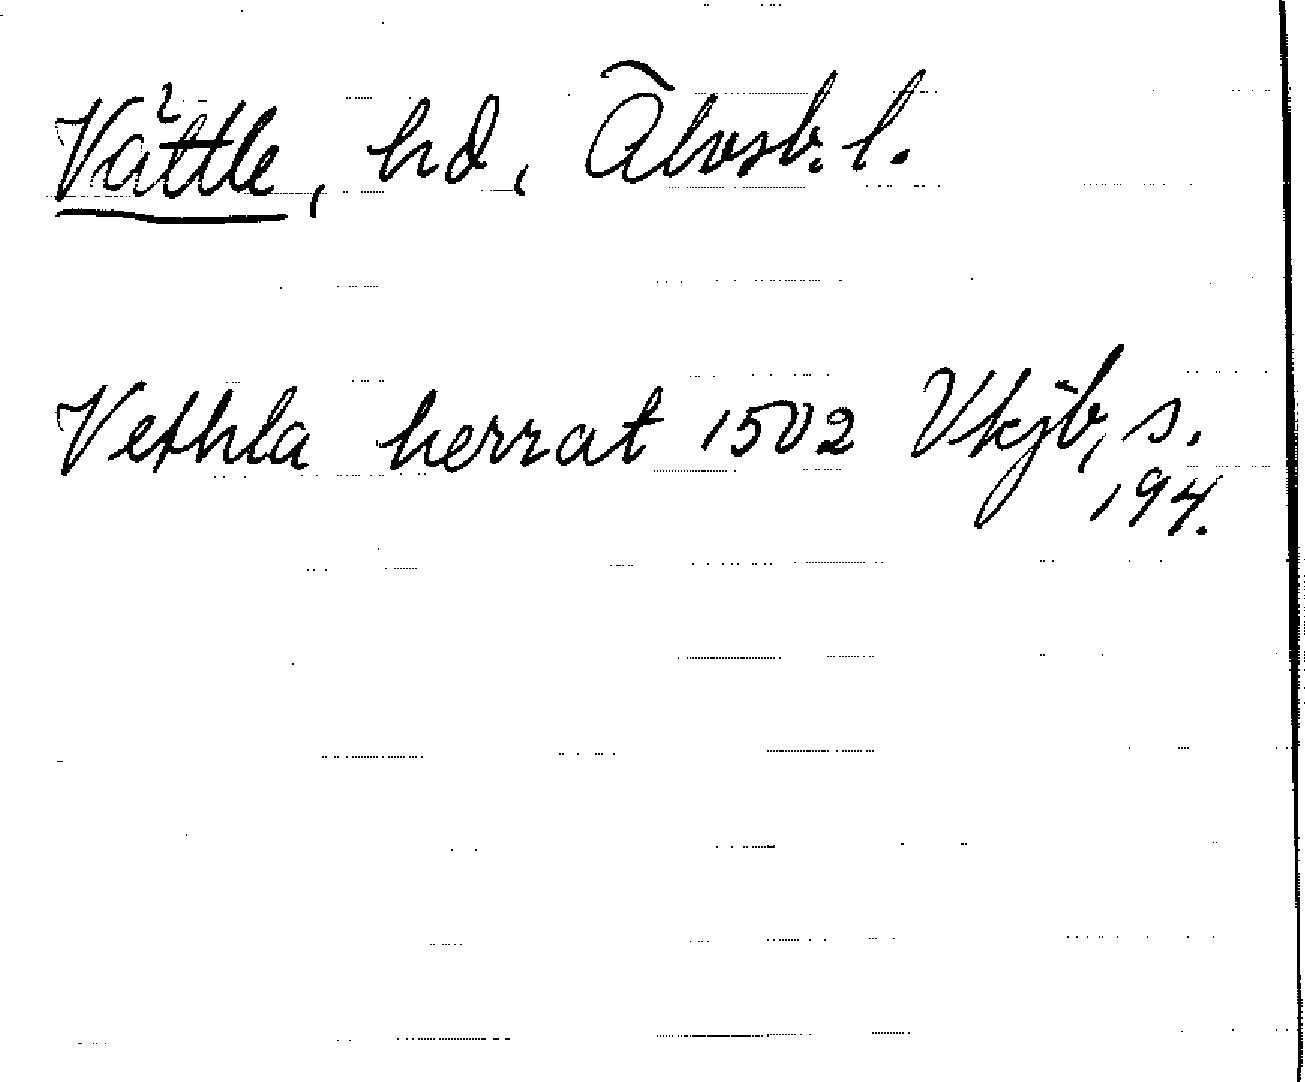 Vättle, hd, Älvsb. l.
Vethla herrat 1502 Vkjb, s.
194.